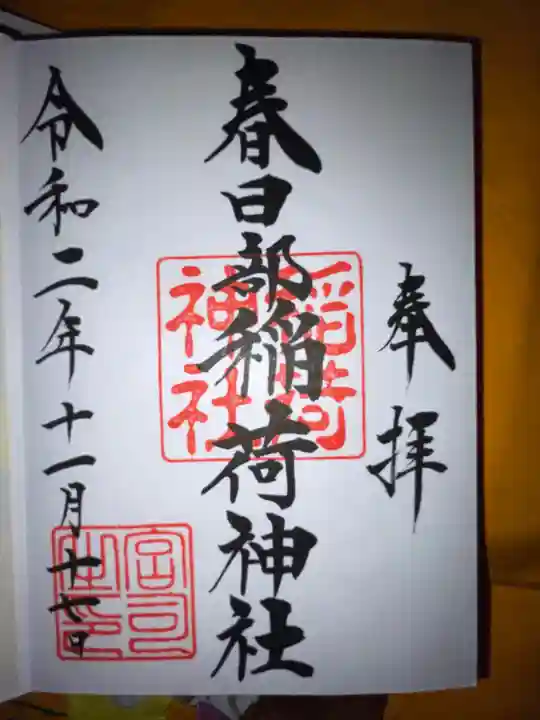 奉拝
春日部稲荷神社
令和二年十一月十七日
稲荷神社
宮司之印